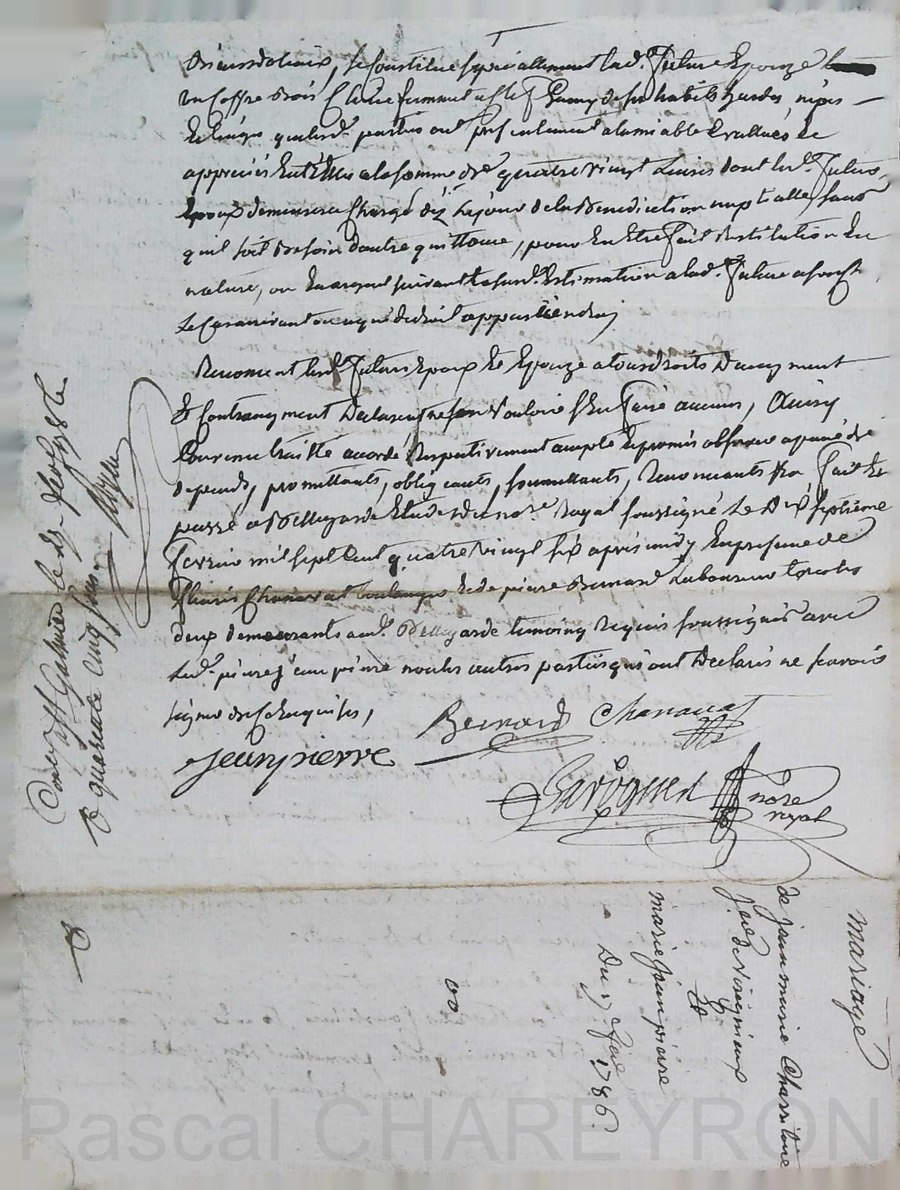 se constitue specialement lad. future Epouze
un coffre bois fermant a clef garny de ses habits hardes nipes
Et linges que lesd. parties ont presentement a lamiable Evalluées Et
appreciés Entr'Elles a la somme de quatre vingt Livres dont led. futur
Epoux demeurera Chargé dez Lejour dela Benediction nuptialle sans
quil soit Besoin dautre quittance, pour En Etre fait restitution En
nature, ou En argent suivant lasusd. Estimation alad. future
Le cas arrivant ou a qui de droit appartiendra
Renoncent lesd. futurs Epoux Et Epouze a tous droits Daugment
Et Contraugment Declarant ne Vouloir En faire aucuns, Ainsy
Convenu traitté accordé Respectivement accepté Et promis observer a peine de
depends, promettants, obligeants, soumettants, Renonceants fait Et
passé a Bellegarde Etude du nore Royal soussigné Le Dix septieme
fevrier mil sept Cent quatre vingt six après midy En presence de
Chanavat boulanger Et de pierre Bernard Laboureur tous les
deux demeurants aud. Bellegarde temoins Requis soussignés avec
Lad. pierre non les autres parties qui ont Declarés ne scavoir
signer de ce Enquises,
Bernard Chanavat
Jeanpierre
nore
royal
Conlé a St Galmier le
quarante Cinq sous
mariage
de Jean marie
de
Et
marie Jeanpierre
Du 17 fer 1786.
Pascal CHAREYRON